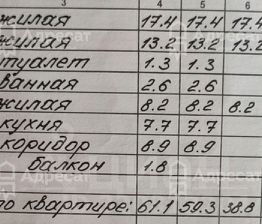 3 4 5 6
жилая 17.4 17.4 17.4
жилая 13.2 13.2 13.2
туалет 1.3 1.3
ванная 2.6 2.6
жилая 8.2 8.2 8.2
кухня 7.7 7.7
коридор 8.9 8.9
балкон 1.8
по квартире: 61.1 59.3 38.8